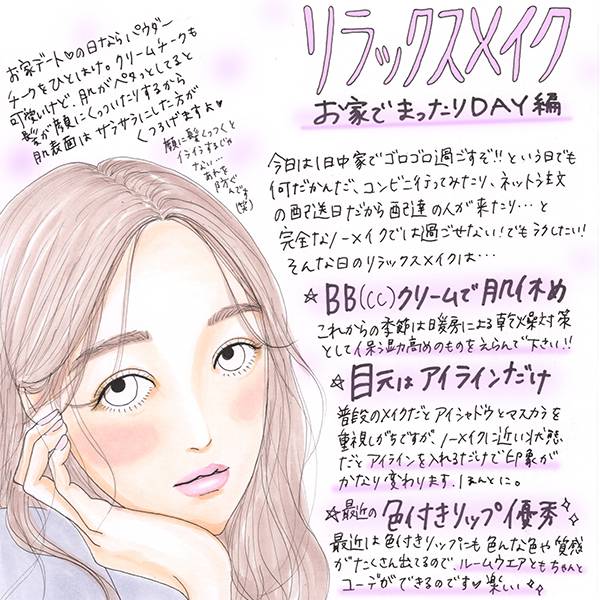 リラックスメイク
お家でまったりDAY編
お家デート♡の日ならパウダー
チークをひとはけ。クリームチークも
可愛いけど、肌がペタっとしてると
髪が顔にくっついたりするから
肌表面はサラサラにした方が
くつろげますよ♡
顔に髪くっつくと
イライラするじゃ
ない…
あれを
防ぐ
んです
(笑)
今日は1日中家でゴロゴロ過ごすぞ!!という日でも
何だかんだ、コンビニ行ってみたり、ネット注文
の配送日だから配達の人が来たり…と
完全なノーメイクでは過ごせない!でもラクしたい!
そんな日のリラックスメイクは…
☆BB(CC)クリームで肌休め
これからの季節は暖房による乾燥対策
として保湿力高めのものをえらんで下さい!!
☆目元はアイラインだけ
普段のメイクだとアイシャドウとマスカラを
重視しがちですが、ノーメイクに近い状態
だとアイラインを入れるだけで印象が
かなり変わります、ほんとに。
☆最近の色付きリップ優秀
最近は色付きリップにも色んな色や質感
がたくさん出てるので、ルームウエアともちゃんと
コーデができるのです♡楽しい